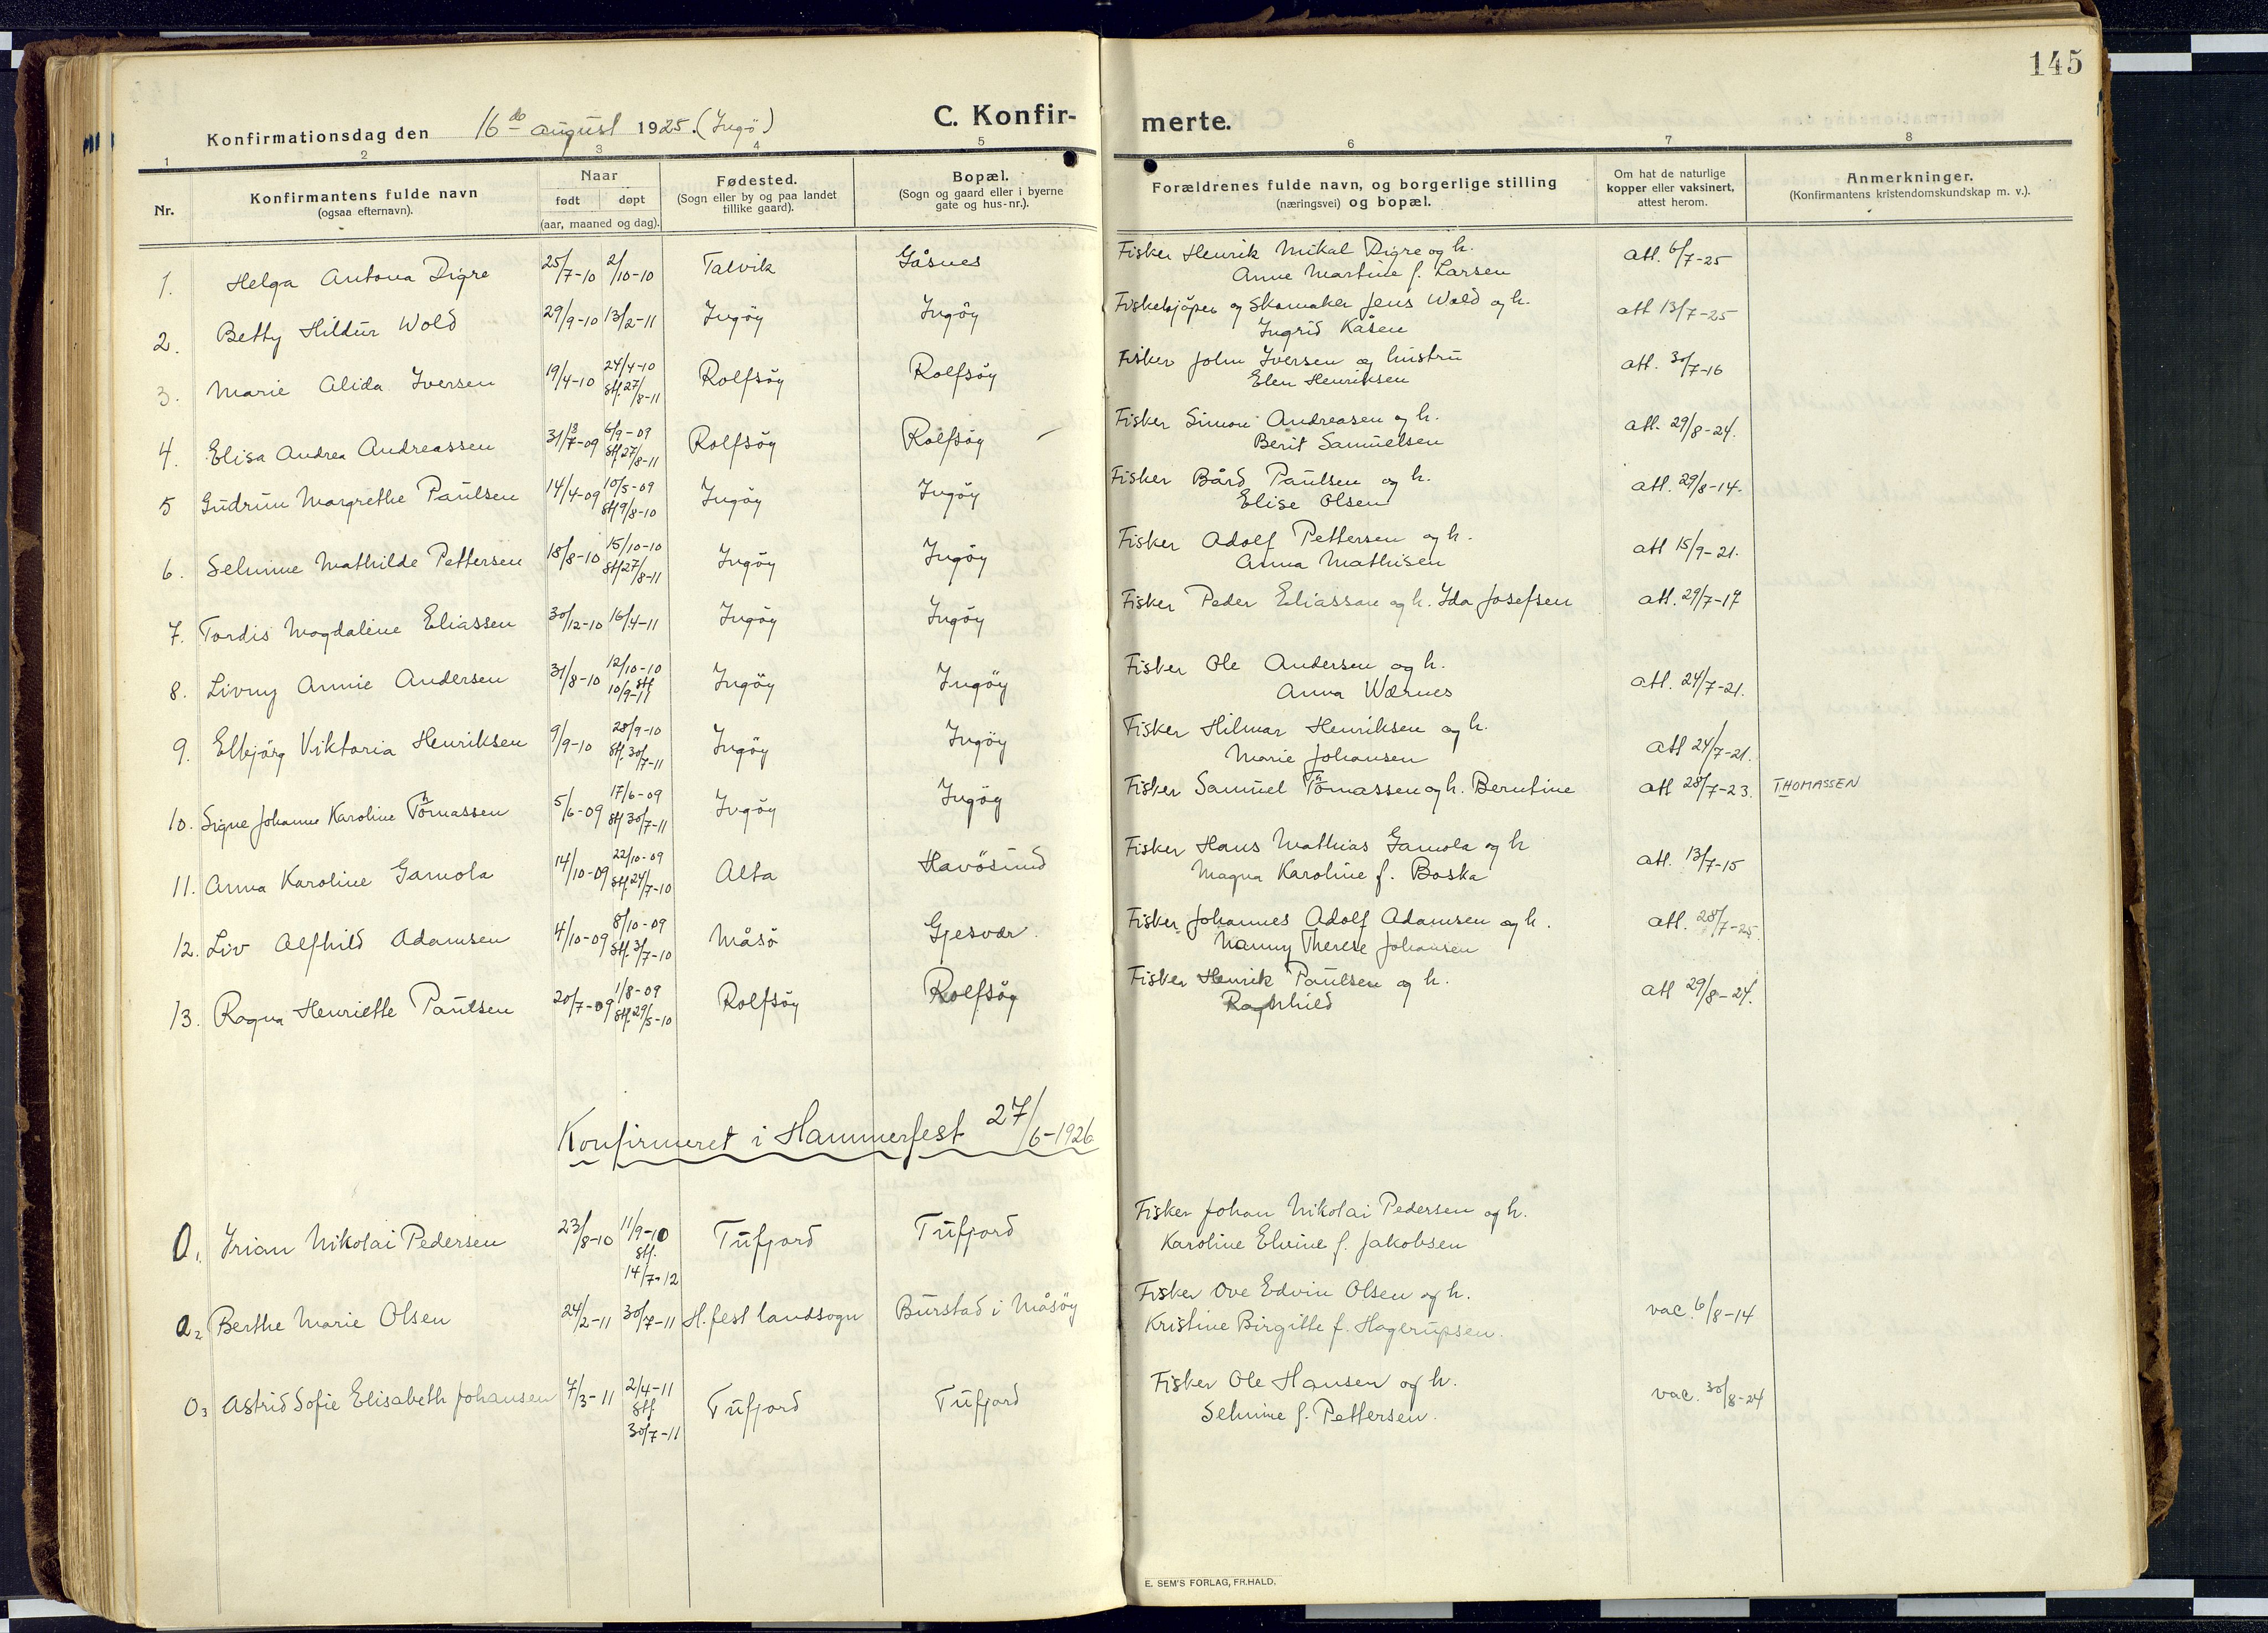 145
Konfirmationsdag den 16de august 1925. (Ingö)
C. Konfir-
merte.
1 2 3 4 5 6 7 8
Nr.
Konfirmantens fulde navn
(ogsaa efternavn).
Naar
født døpt
(aar, maaned og dag).
Fødested.
(Sogn eller by og paa landet
tillike gaard).
Bopæl.
(Sogn og gaard eller i byerne
gate og hus-nr.).
Forældrenes fulde navn, og borgerlige stilling
(næringsvei) og bopæl.
Om hat de naturlige
kopper eller vaksinert,
attest herom.
Anmerkninger.
(Konfirmantens kristendomskundskap m. v.).
1. Helga Antona Digre 25/7-10 2/10-10 Talvik Gåsnes Fisker Henrik Mikal Digre og h.
Anne Martine f. Larsen att. 6/7-25
2. Betty Hildur Wold 29/9-10 13/2-11 Ingöy Ingöy Fiskekjöper og Skomaker Jens Wold og h.
Ingrid Kåsen att 13/7-25
3. Marie Alida Iversen 19/4-10 24/4-10 stf. 27/8-11 Rolfsöy Rolfsöy Fisker John Iversen og hustru
Elen Henriksen att. 30/7-16
4. Elisa Andrea Andreassen 31/7-09 6/9-09 stf 27/8-11 Rolfsöy Rolfsöy Fisker Simon Andreasen og h.
Berit Samuelsen att. 29/8-24.
5 Gudrun Margrethe Paulsen 14/4-09 10/5-09 stf 9/8-10 Ingöy Ingöy Fisker Bård Paulsen og h.
Elise Olsen att. 29/8-14.
6. Selmine Mathilde Pettersen 18/8-10 15/10-10 stf 27/8-11 Ingöy Ingöy Fisker Adolf Pettersen og h.
Anna Mathisen att 15/9-21.
7. Tordis Magdaline Eliassen 30/12-10 16/4-11 Ingöy Ingöy Fisker Peder Eliassen og h. Ida Josefsen att. 29/7-19
8. Livny Annie Andersen 31/8-10 12/10-10 stf 10/9-11 Ingöy Ingöy Fisker Ole Andersen og h.
Anna Wærnes att. 24/7-21.
9. Elbjörg Viktoria Henriksen 9/9-10 28/9-10 stf. 30/7-11 Ingöy Ingöy Fisker Hilmar Henriksen og h.
Marie Johansen att 24/7-21.
10. Signe Johanne Karoline Thomassen 5/6-09 17/6-09 stf 30/7-11 Ingöy Ingöy Fisker Samuel Thomassen og h. Berntine att 28/7-23. THOMASSEN
11. Anna Karoline Gamola 14/10-09 22/10-09 stf. 24/7-10 Alta Havösund Fisker Hans Mathias Gamola og h
Magna Karoline f. Boska att. 13/7-15
12. Liv Alfhild Adamsen 4/10-09 8/10-09 stf. 3/7-10 Måsö Gjesvær. Fisker Johannes Adolf Adamsen og h.
Nanny Therese Johansen att. 28/7-25.
13. Ragna Henriette Paulsen 20/7-09 1/8-09 stf. 29/5-10 Rolfsöy Rolfsöy Fisker Henrik Paulsen og h.
Ragnhild att 29/8-24.
Konfirmeret i Hammerfest 27/6-1926
0, Irian Nikolai Pedersen 23/8-10 11/9-10 stf. 14/7-12 Tufjord Tufjord Fisker Johan Nikolai Pedersen og h.
Karoline Elvine f. Jakobsen
0 2 Berthe Marie Olsen 24/2-11 30/7-11 H.fest landsogn Burstad i Måsöy Fisker Ove Edvin Olsen og h.
Kristine Birgitte f. Hagerupsen. vac. 6/8-14
0 3 Astrid Sofie Elisabeth Johansen 7/3-11 2/4-11 stf. 30/7-11 Tufjord Tufjord Fisker Ole Hansen og h.
Selmine f. Pettersen. vac. 30/8-24
E. SEM'S FORLAG, FR.HALD.